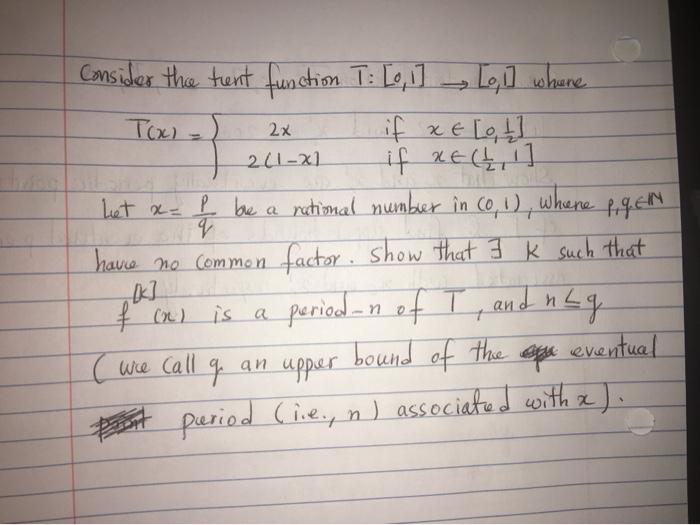 Consider the tent function T: [0,1] → [0,1] where
T(x) = { 2x if x ∈ [0, 1/2]
2(1-x] if x ∈ (1/2, 1]
Let x = p/q be a rational number in (0,1), where p,q ∈ N
have no common factor. Show that ∃ k such that
f^[k] (x) is a period-n of T, and n ≤ q
(we call q an upper bound of the eventual
period (i.e., n) associated with x).